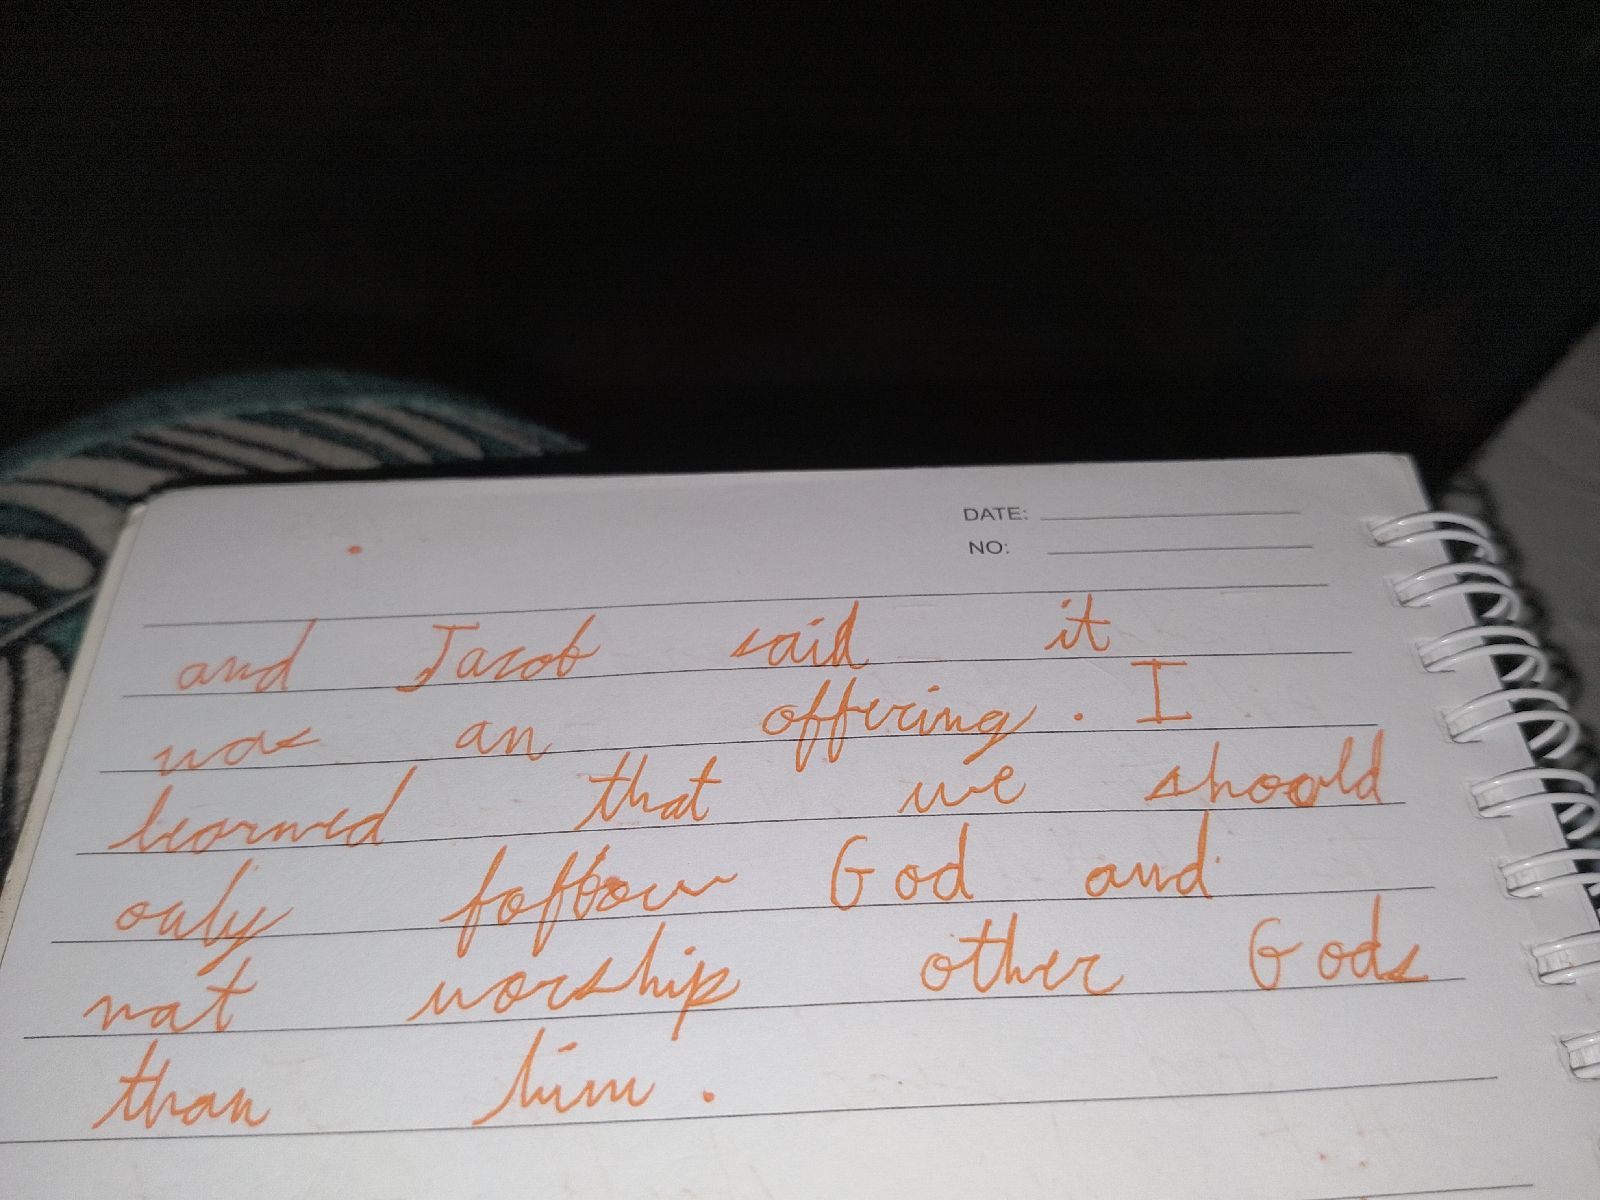 DATE:
NO:
and Jacob said it
was an offering. I
learned that we shoold
only follow God and
not worship other Gods
than him.